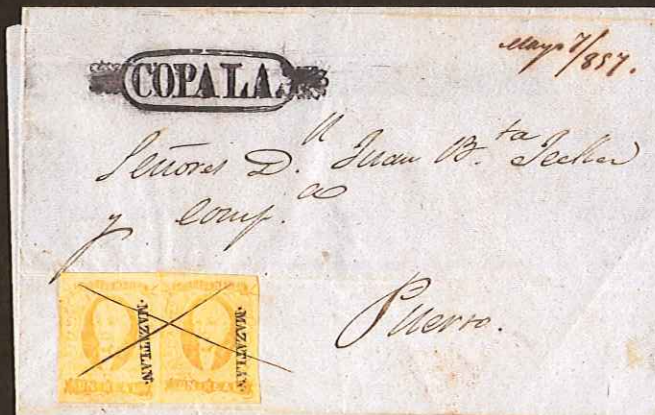 COPALA.
Mayo 7/857.
Señores Dn Juan B.ta Jecker
y Comp.a
Puerto.
·MAZATLAN· ·MAZATLAN·
UN REAL UN REAL